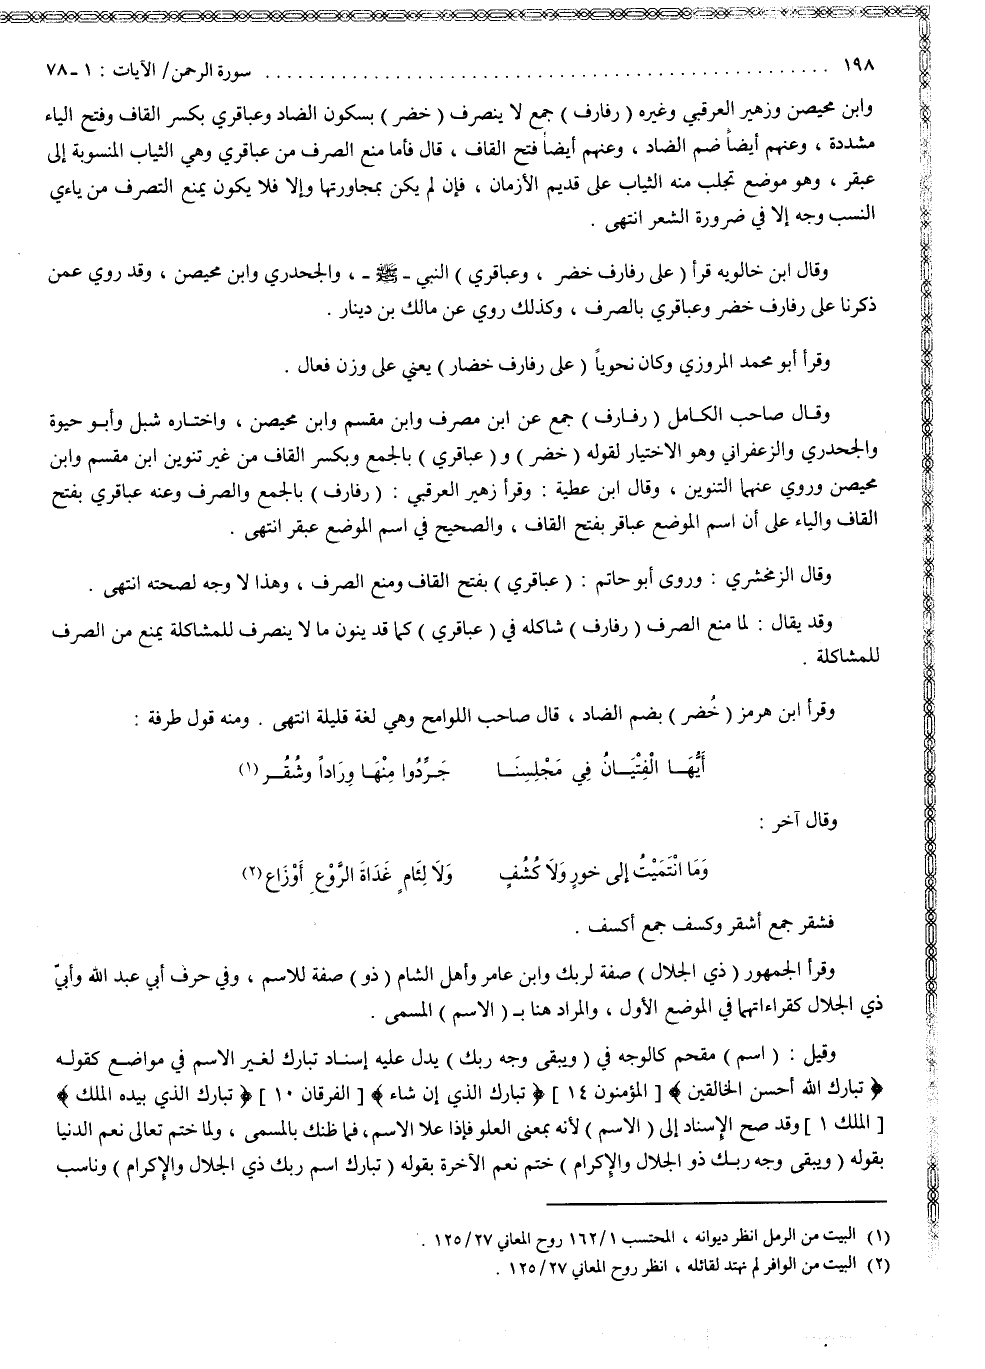 ١٩٨ ........................................ سورة الرحمن/ الآيات : ١ ـ ٧٨
وابن محيصن وزهير العرقبي وغيره ( رفارف ) جمع لا ينصرف ( خضر ) بسكون الضاد وعباقري بكسر القاف وفتح الياء
مشددة ، وعنهم أيضاً ضم الضاد ، وعنهم أيضاً فتح القاف ، قال فأما منع الصرف من عباقري وهي الثياب المنسوبة إلى
عبقر ، وهو موضع تجلب منه الثياب على قديم الأزمان ، فإن لم يكن بمجاورتها وإلا فلا يكون يمنع التصرف من ياءي
النسب وجه إلا في ضرورة الشعر انتهى .
وقال ابن خالويه قرأ ( على رفارف خضر ، وعباقري ) النبي ـ ﷺ ـ ، والجحدري وابن محيصن ، وقد روي عمن
ذكرنا على رفارف خضر وعباقري بالصرف ، وكذلك روي عن مالك بن دينار .
وقرأ أبو محمد المروزي وكان نحوياً ( على رفارف خضار ) يعني على وزن فعال .
وقال صاحب الكامل ( رفارف ) جمع عن ابن مصرف وابن مقسم وابن محيصن ، واختاره شبل وأبو حيوة
والجحدري والزعفراني وهو الاختيار لقوله ( خضر ) و ( عباقري ) بالجمع وبكسر القاف من غير تنوين ابن مقسم وابن
محيصن وروي عنهما التنوين ، وقال ابن عطية : وقرأ زهير العرقبي : ( رفارف ) بالجمع والصرف وعنه عباقري بفتح
القاف والياء على أن اسم الموضع عباقر بفتح القاف ، والصحيح في اسم الموضع عبقر انتهى .
وقال الزمخشري : وروى أبو حاتم : ( عباقري ) بفتح القاف ومنع الصرف ، وهذا لا وجه لصحته انتهى .
وقد يقال : لما منع الصرف ( رفارف ) شاكله في ( عباقري ) كما قد ينون ما لا ينصرف للمشاكلة يمنع من الصرف
للمشاكلة .
وقرأ ابن هرمز ( خُضر ) بضم الضاد ، قال صاحب اللوامح وهي لغة قليلة انتهى . ومنه قول طرفة :
أَيُّهَا الْفِتْيَانُ فِي مَجْلِسِنَا جَرِّدُوا مِنْهَا وِرَاداً وشُقُر (١)
وقال آخر :
وَمَا انْتَمَيْتُ إلى خورٍ وَلَا كُشُفٍ وَلَا لِئَامٍ غَدَاةَ الرَّوْعِ أَوْزَاعِ (٢)
فشقر جمع أشقر وكسف جمع أكسف .
وقرأ الجمهور ( ذي الجلال ) صفة لربك وابن عامر وأهل الشام ( ذو ) صفة للاسم ، وفي حرف أبي عبد الله وأبيّ
ذي الجلال كقراءاتهما في الموضع الأول ، والمراد هنا بـ ( الاسم ) المسمى .
وقيل : ( اسم ) مقحم كالوجه في ( ويبقى وجه ربك ) يدل عليه إسناد تبارك لغير الاسم في مواضع كقوله
﴿ تبارك الله أحسن الخالقين ﴾ [ المؤمنون ١٤ ] ﴿ تبارك الذي إن شاء ﴾ [ الفرقان ١٠ ] ﴿ تبارك الذي بيده الملك ﴾
[ الملك ١ ] وقد صح الإسناد إلى ( الاسم ) لأنه بمعنى العلو فإذا علا الاسم، فما ظنك بالمسمى ، ولما ختم تعالى نعم الدنيا
بقوله ( ويبقى وجه ربك ذو الجلال والإكرام ) ختم نعم الآخرة بقوله ( تبارك اسم ربك ذي الجلال والإكرام ) وناسب
(١) البيت من الرمل انظر ديوانه ، المحتسب ١٦٢/١ روح المعاني ١٢٥/٢٧ .
(٢) البيت من الوافر لم نهتد لقائله ، انظر روح المعاني ١٢٥/٢٧ .